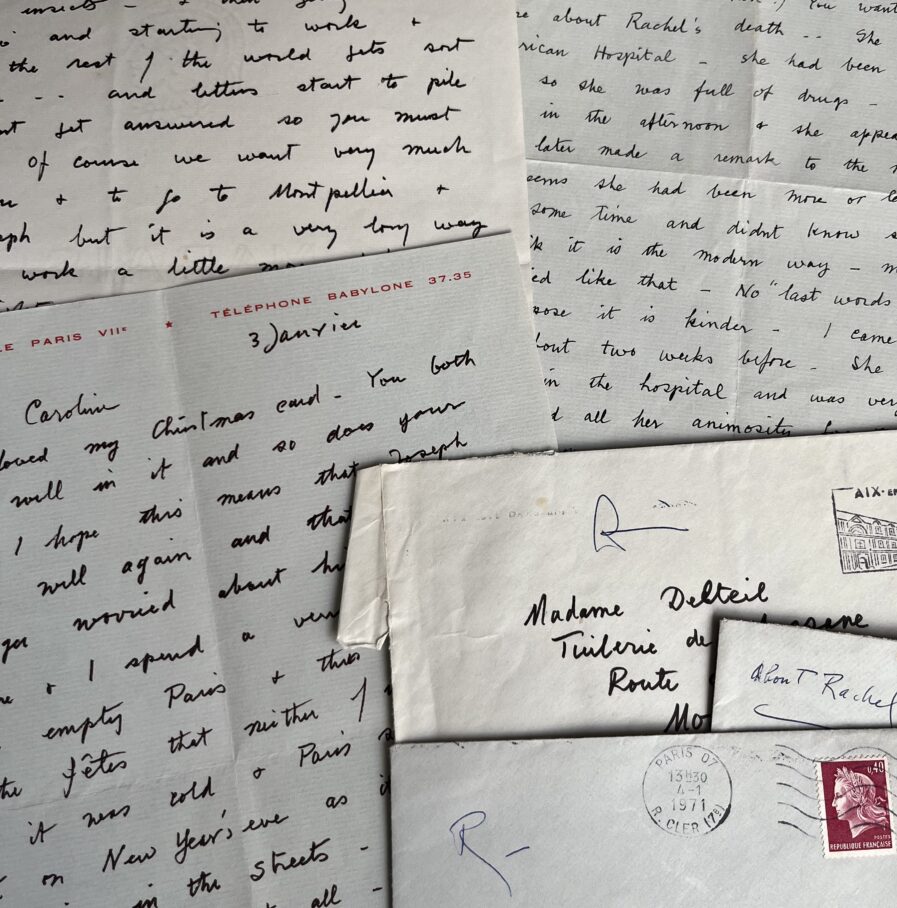 insects - &
and starting to work &
the rest of the world gets sort
- - and letters start to pile
get answered so you must
of course we want very much
& to go to Montpellier &
but it is a very long way
work a little
You want
about Rachel's death - - She
rican Hospital - she had been
so she was full of drugs -
in the afternoon & she appea
later made a remark to the
seems she had been more or le
some time and didnt know
it is the modern way -
ied like that - No "last words
pose it is kinder - I came
bout two weeks before - She
in the hospital and was ver
all her animosity
LE PARIS VIIE ★ TÉLÉPHONE BABYLONE 37.35
3 Janvier
Caroline
loved my Christmas card - You both
well in it and so does your
I hope this means that Joseph
will again and that
worried about
& I spend a ver
empty Paris & this
the fêtes that neither
it was cold & Paris
on New Year's eve as
in the streets -
all -
R
AIX-EN
Madame Delteil
Tuilerie de
Route
Mo
About Rachel
R-
PARIS 07
13H30
4-1
1971
R. CLER (7e)
0,40
POSTES
REPUBLIQUE FRANÇAISE